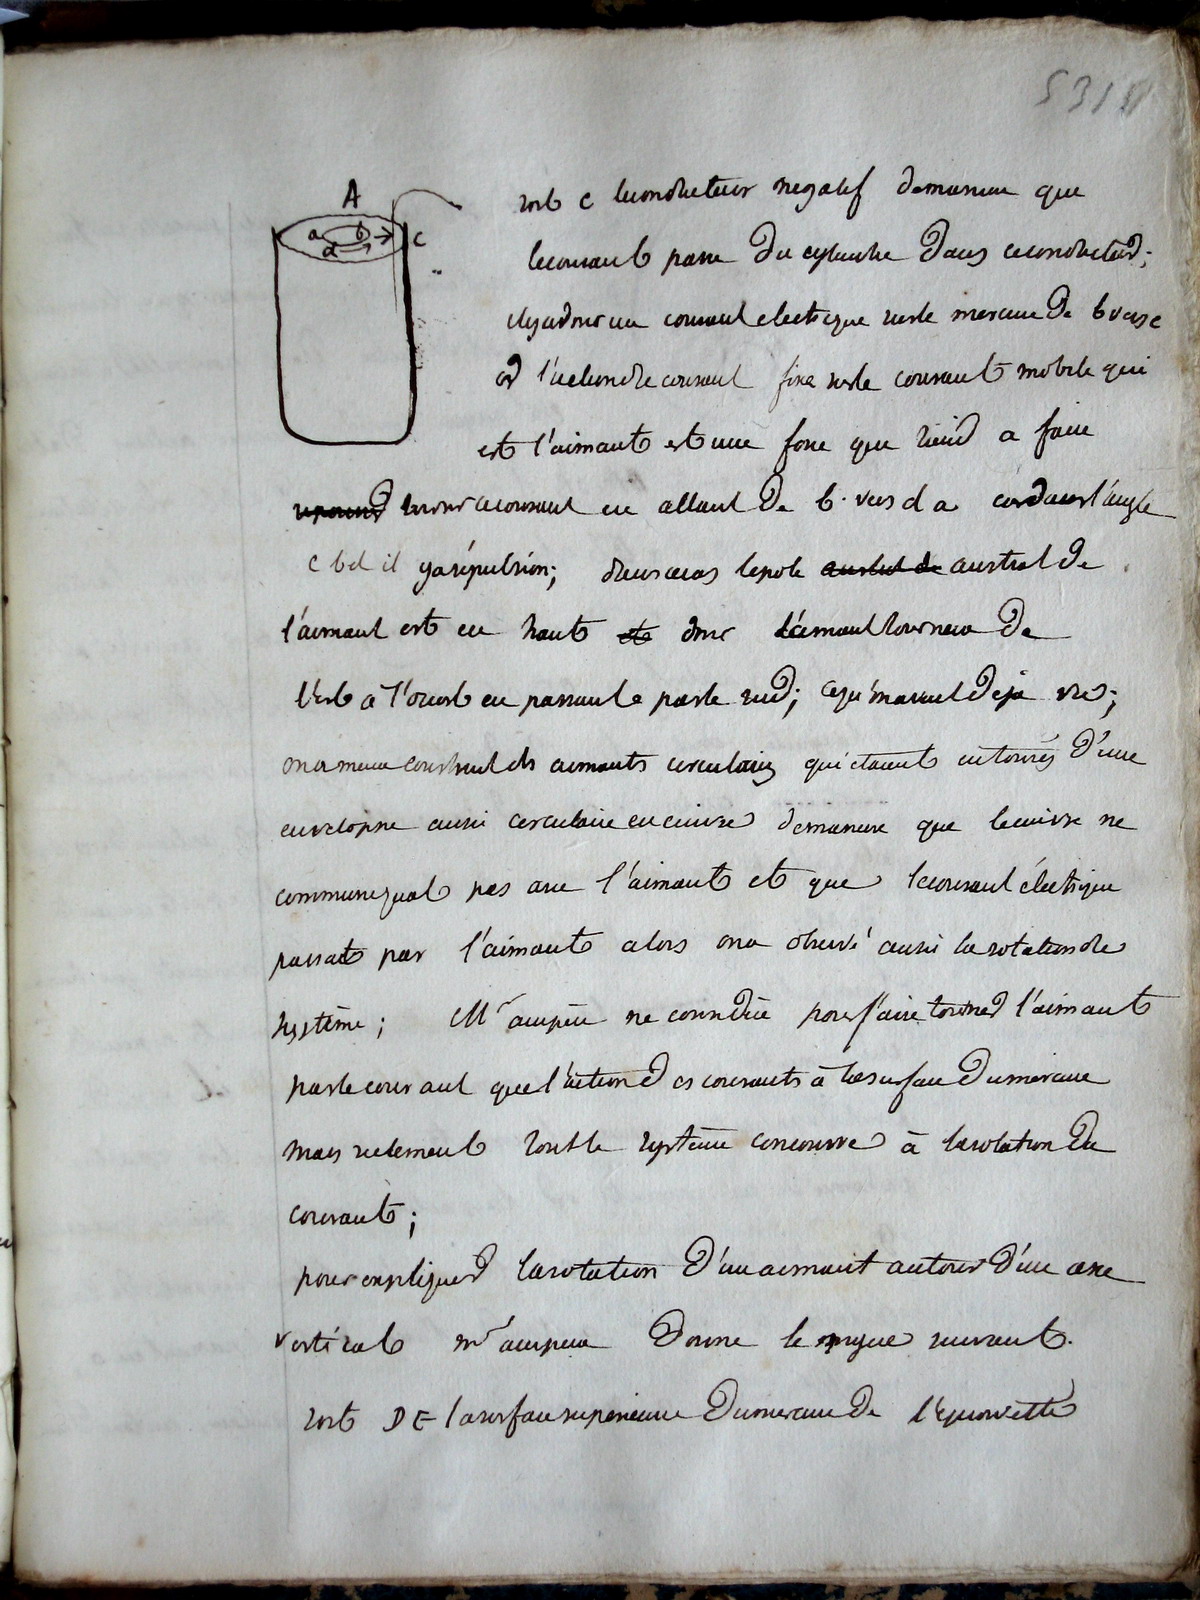 531
A
a b c
d
soit c le conducteur negatif de maniere que
le courant passe du cylindre dans ce conducteur;
il y a donc un courant electrique sur le mercure de b vers c
or l'action de courant fixe sur le courant mobile qui
est l'aimant est une force que tend a faire
tourner ce courant en allant de b vers d a car dans l'angle
c b d il y a répulsion; dans ce cas le pole austral de
l'aimant est en haut donc l'aimant tournera de
l'est à l'ouest en passant par le sud; ce qu'on avait deja vu;
on a meme construit des aimants circulaires qui etaient entourés d'une
enveloppe aussi circulaire en cuivre de maniere que le cuivre ne
communiquat pas avec l'aimant et que le courant électrique
passat par l'aimant alors on a observé aussi la rotation de
système; Mr ampère ne considère pour faire tourner l'aimant
par le courant que l'action des courants à la surface du mercure
mais reelement tout le système concourre à la rotation du
courant;
pour expliquer la rotation d'un aimant autour d'un axe
vertical mr ampere donne le moyen suivant.
soit DE la surface superieure du mercure de l'eprouvette